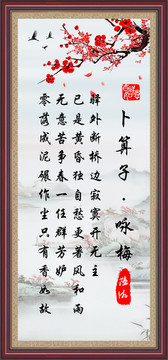 卜算子·咏梅
陆游
驿外断桥边寂寞开无主
已是黄昏独自愁更著风和雨
无意苦争春一任群芳妒
零落成泥碾作尘只有香如故